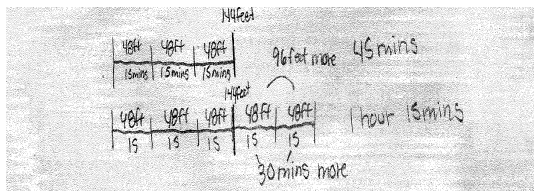 144feet
48ft 48ft 48ft
15mins 15mins 15mins
96feet more 45mins
144feet
48ft 48ft 48ft 48ft 48ft
15 15 15 15 15
1 hour 15mins
30mins more